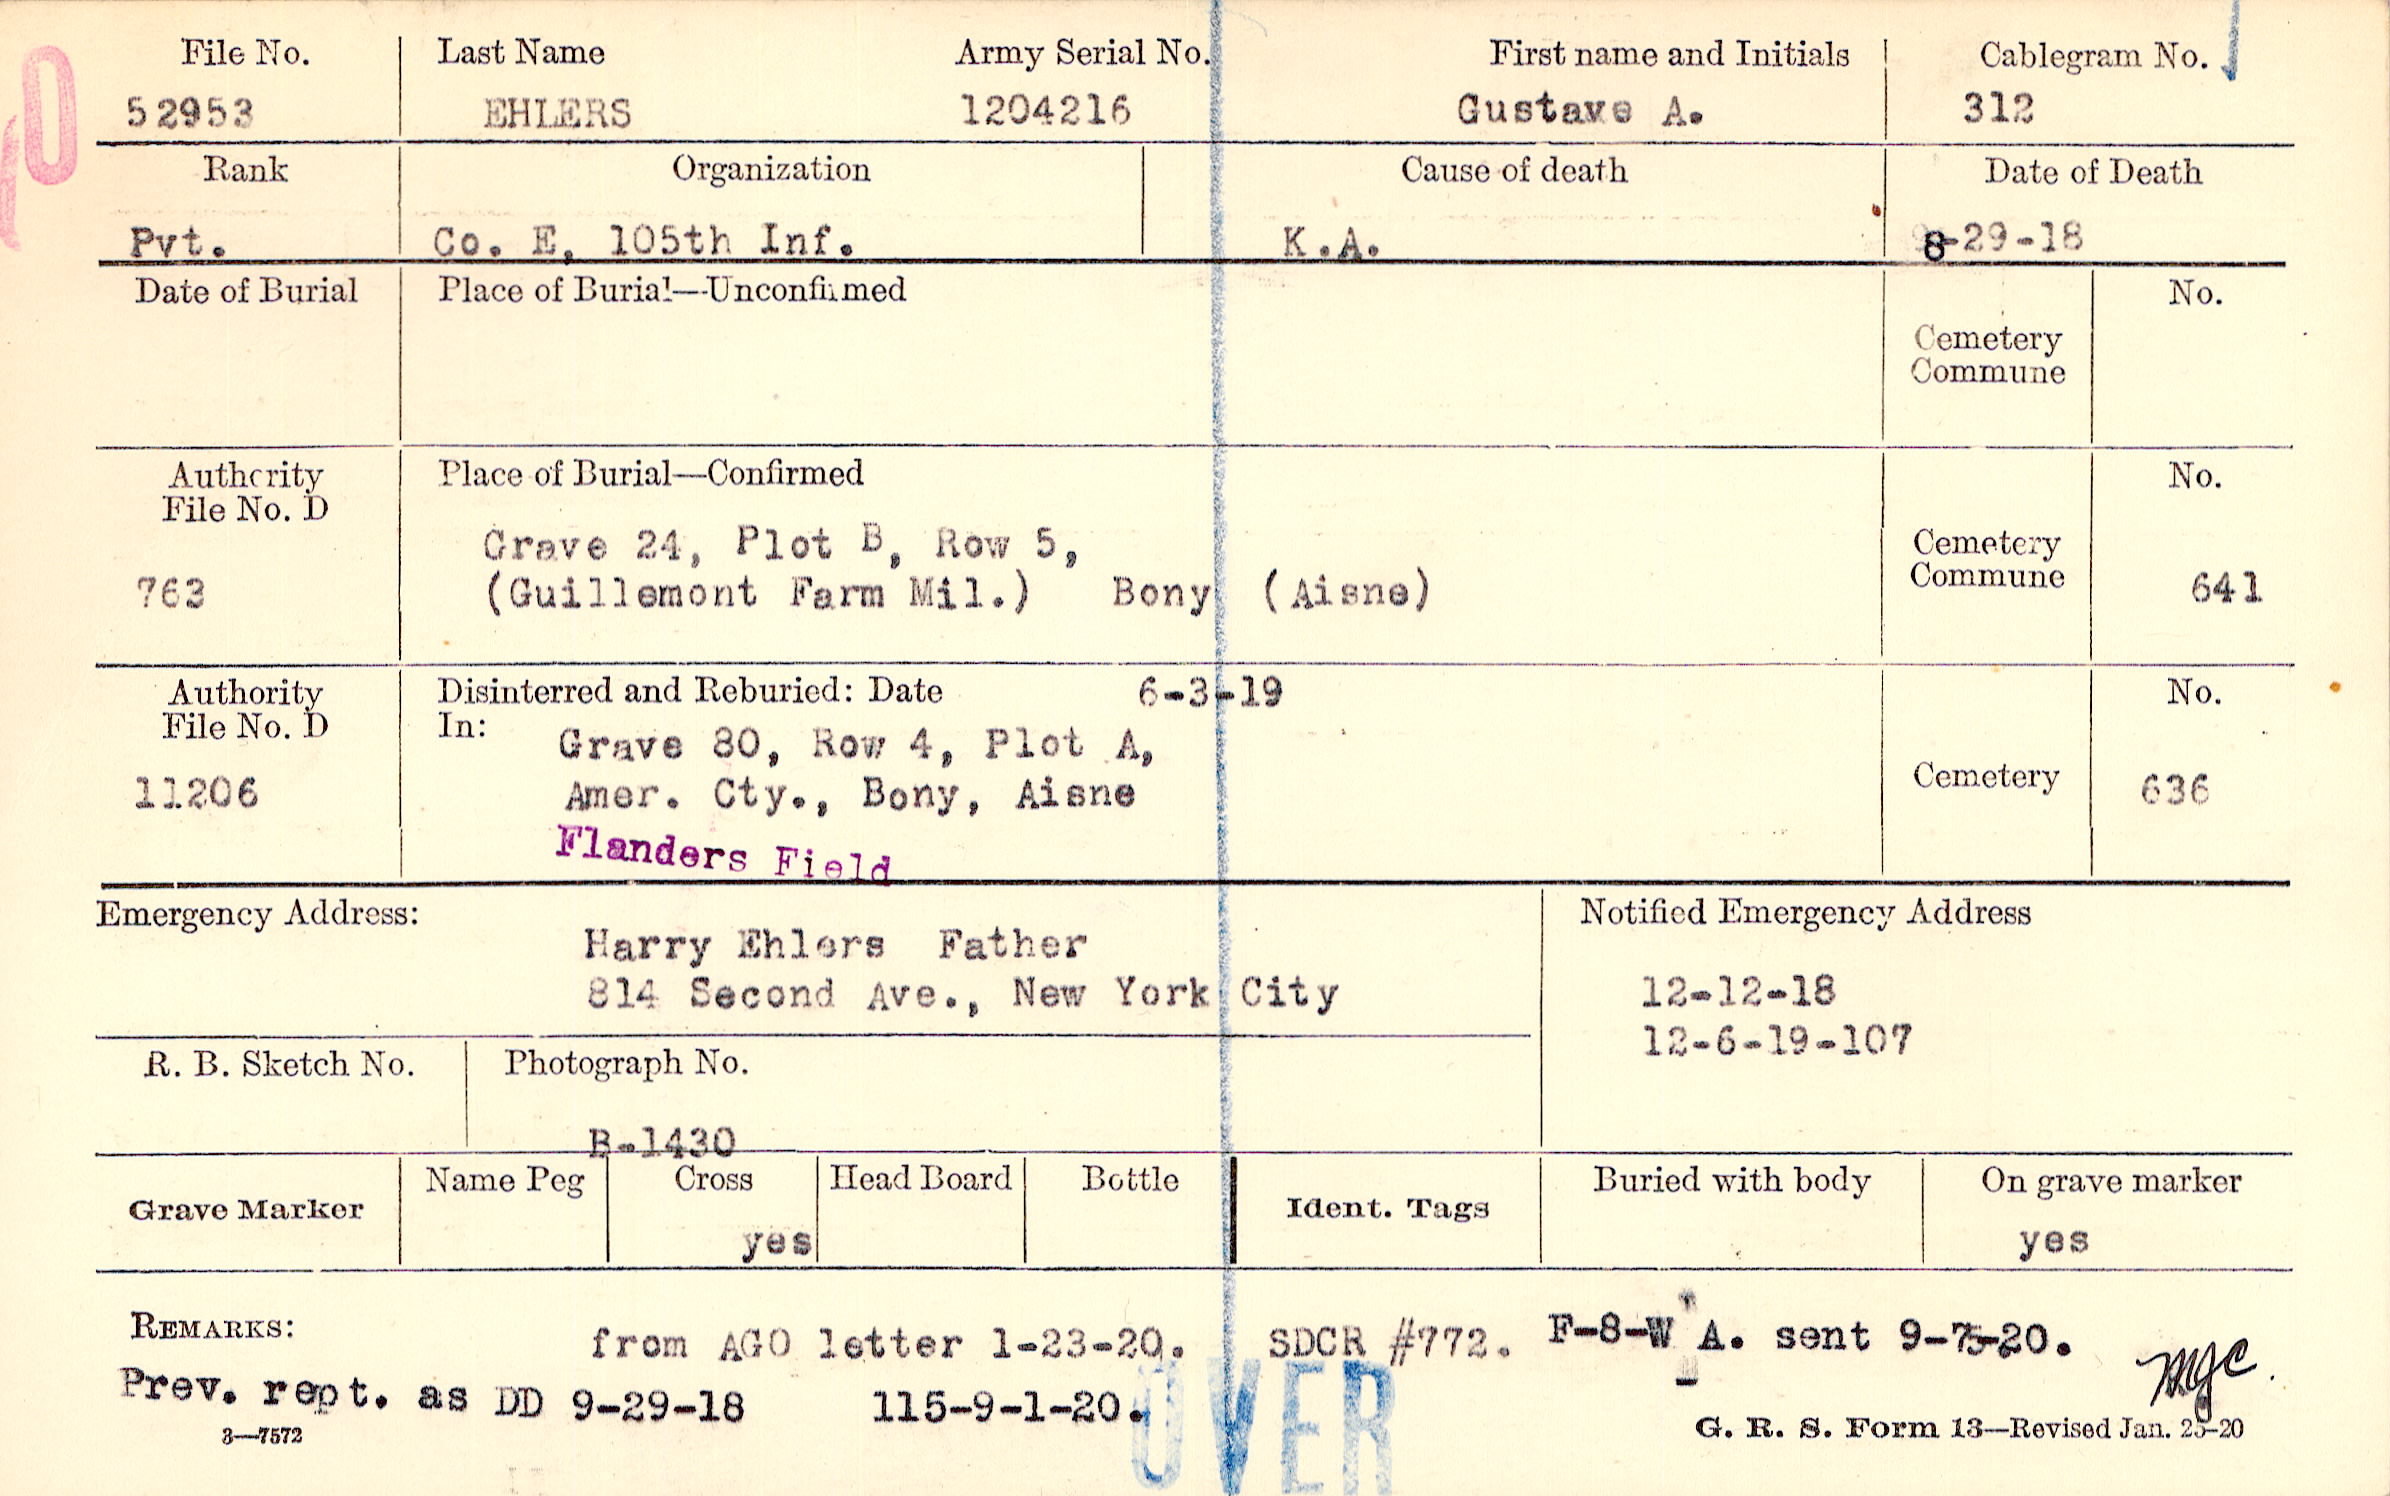 File No. Last Name Army Serial No. First name and Initials Cablegram No.
52953 EHLERS 1204216 Gustave A. 312
Rank Organization Cause of death Date of Death
Pvt. Co. E, 105th Inf. K.A. 8-29-18
Date of Burial Place of Burial—Unconfirmed No.
Cemetery
Commune
Authority Place of Burial—Confirmed No.
File No. D
Grave 24, Plot B, Row 5, Cemetery
763 (Guillemont Farm Mil.) Bony (Aisne) Commune 641
Authority Disinterred and Reburied: Date 6-3-19 No.
File No. D In: Grave 80, Row 4, Plot A,
11206 Amer. Cty., Bony, Aisne Cemetery 636
Flanders Field
Emergency Address: Notified Emergency Address
Harry Ehlers Father
814 Second Ave., New York City 12-12-18
12-6-19-107
R. B. Sketch No. Photograph No.
B-1430
Grave Marker Name Peg Cross Head Board Bottle Ident. Tags Buried with body On grave marker
yes yes
REMARKS: from AGO letter 1-23-20. SDCR #772. F-8-W A. sent 9-7-20.
Prev. rept. as DD 9-29-18 115-9-1-20. MJC
3—7572 G. R. S. Form 13—Revised Jan. 25-20
OVER